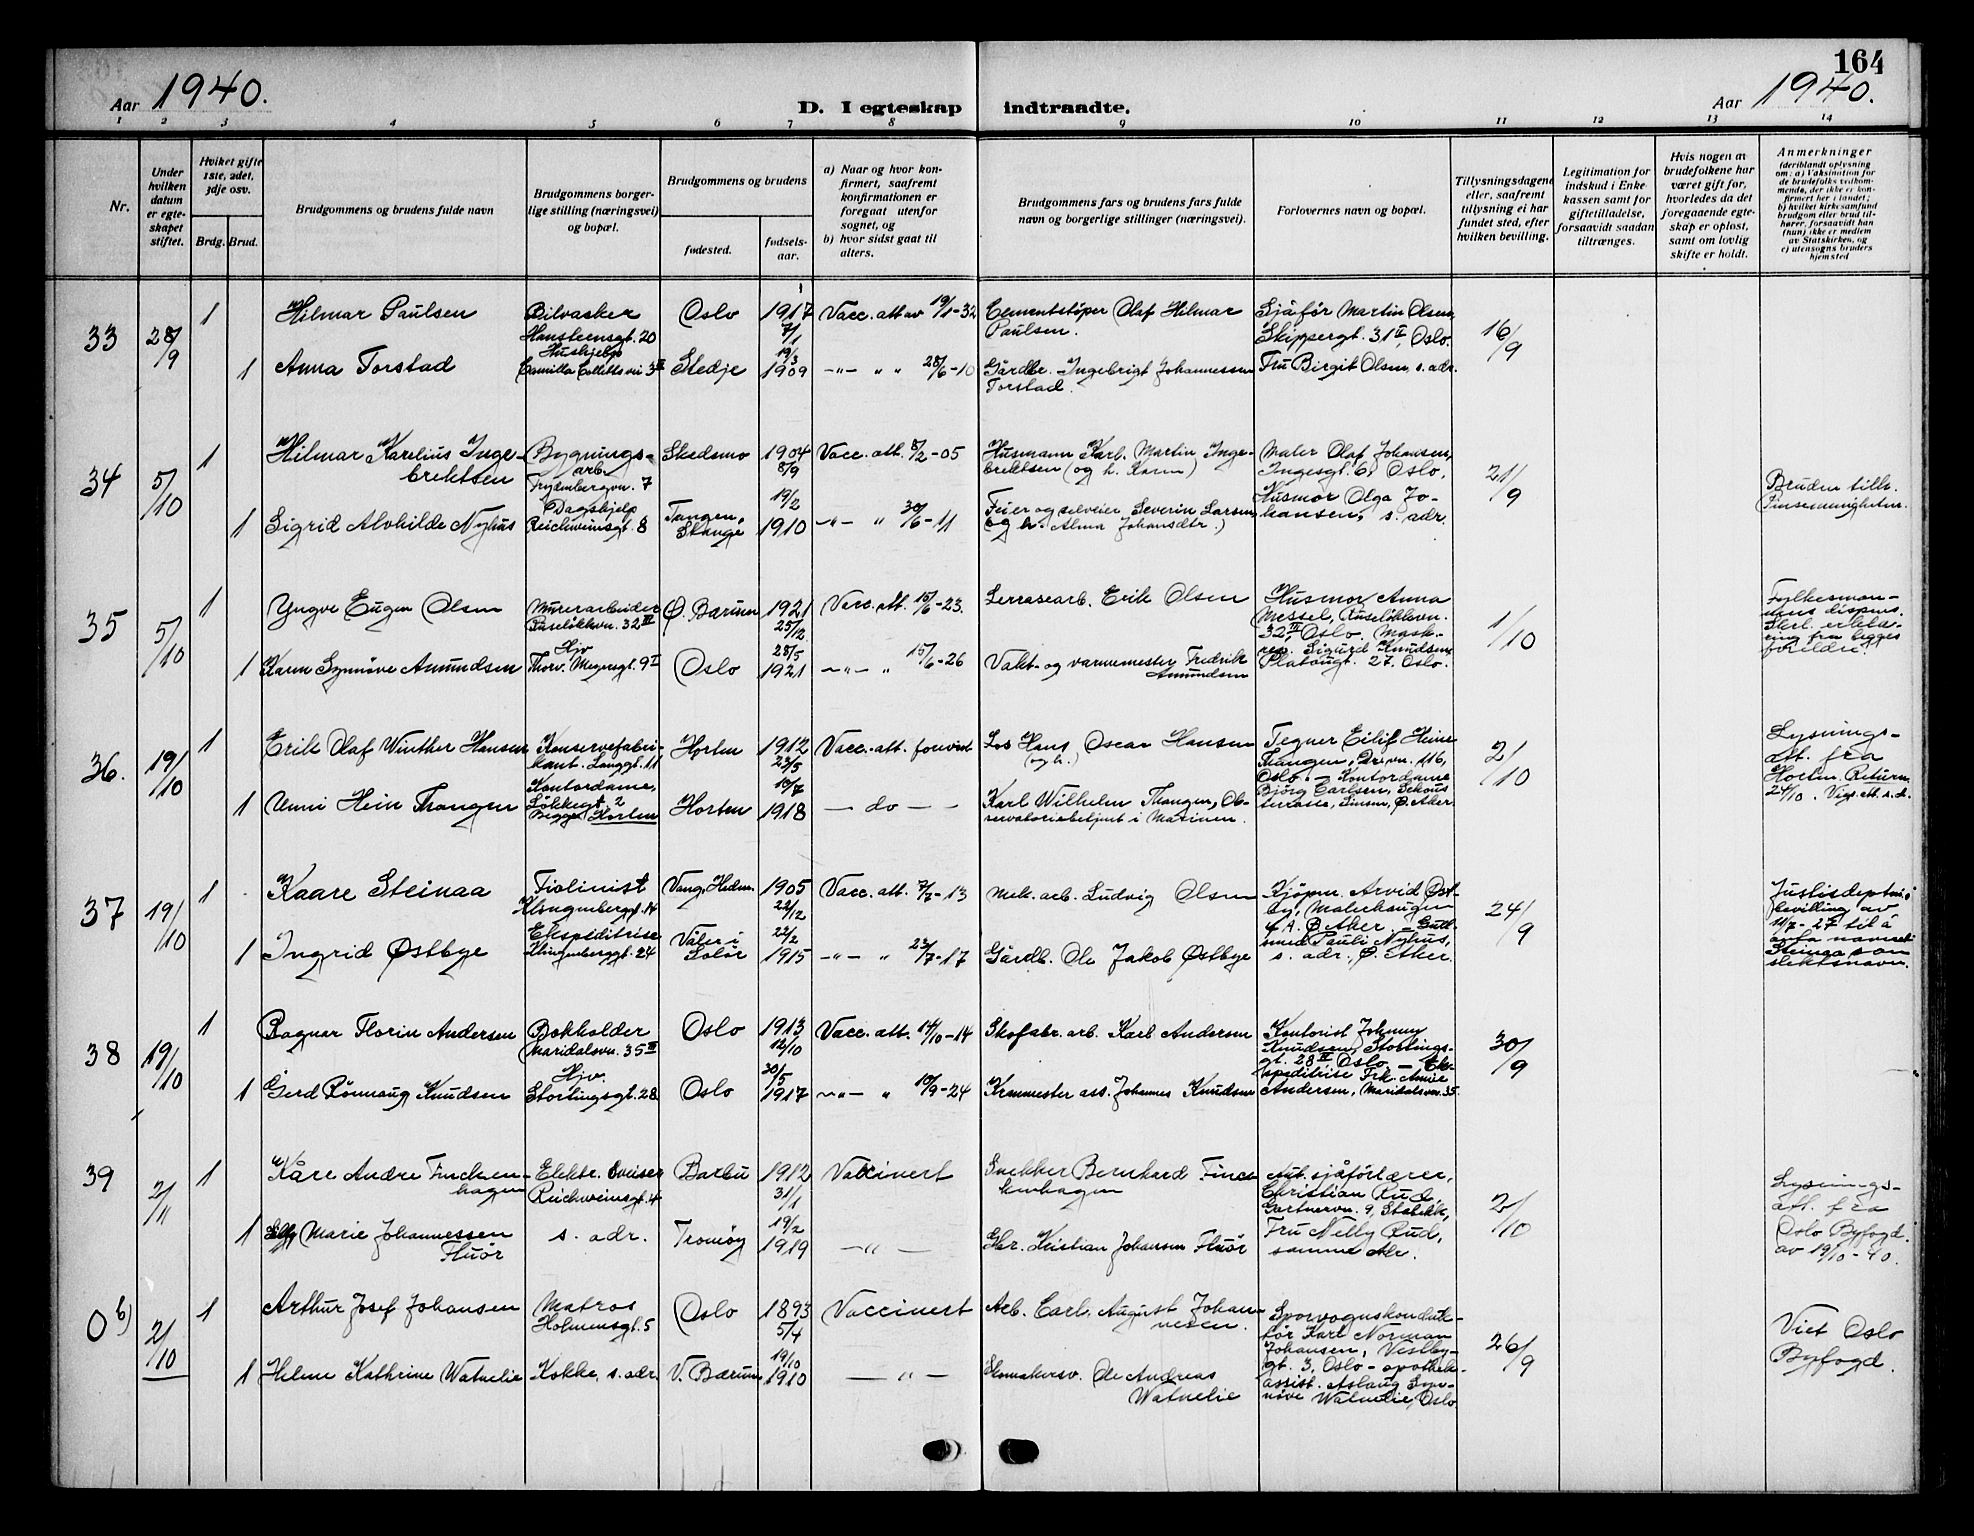 164
Aar 1940.
D. I egteskap indtraadte.
Aar 1940.
1 2 3 4 5 6 7 8 9 10 11 12 13 14
Nr.
Under hvilken datum er egteskapet stiftet.
Hvilket gifte 1ste, 2det, 3dje osv.
Brdg. Brud.
Brudgommens og brudens fulde navn
Brudgommens borgerlige stilling (næringsvei) og bopæl.
Brudgommens og brudens
fødested.
fødselsaar.
a) Naar og hvor konfirmert, saafremt konfirmationen er foregaat utenfor sognet, og
b) hvor sidst gaat til alters.
Brudgommens fars og brudens fars fulde navn og borgerlige stillinger (næringsvei).
Forlovernes navn og bopæl.
Tillysningsdagene eller, saafremt tillysning ei har fundet sted, efter hvilken bevilling.
Legitimation for indskud i Enkekassen samt for giftetilladelse, forsaavidt saadan tiltrænges.
Hvis nogen av brudefolkene har været gift før, hvorledes da det foregaaende egteskap er opløst, samt om lovlig skifte er holdt.
Anmerkninger
(deriblandt oplysning om: a) Vaksination for de brudefolks vedkommende, der ikke er konfirmert her i landet; b) hvilket kirkesamfund brudgom eller brud tilhører, forsaavidt han (hun) ikke er medlem av Statskirken, og c) utensogns bruders hjemsted
33 28/9 1 Hilmar Paulsen Bilvasker Hansteensgt. 20 Oslo 1917 7/1 Vacc. att av 19/1-32 Cementstøper Olaf Hilmar Paulsen. Sjåfør Martin Olsen, Skippergt. 31 II, Oslo. 16/9
1 Anna Torstad Hushjelp Camilla Colletts vei 3 II Stedje 19/3 1909 -"- " " 28/6-10 Gårdbr. Ingebrigt Johannessen Torstad. Fru Birgit Olsen, s. adr.
34 5/10 1 Hilmar Karelius Ingebrektsen Bygningsarb. Frydenbergvn. 7 Skedsmo 1904 8/9 Vacc. att. 8/2-05 Husmann Karl Martin Ingebrektsen (og h. Karen) Maler Olaf Johansen, Ingesgt. 6, Oslo, 21/9
1 Sigrid Alvhilde Nyhus Dagshjelp Reichweinsgt. 8 Tangen, Stange 19/2 1910 -"- " 30/6-11 Feier og selveier Severin Larsen og h. Alma Johansdtr.) Husmor Olga Johansen, s. adr. Bruden tilh. Pinsemenigheten.
35 5/10 1 Yngve Eugen Olsen Murerarbeider Ruseløkkvn. 32 III Ø. Bærum 1921 25/12 Vacc. att. 15/6-23. Terrasearb. Erik Olsen Husmor Anna Messel, Ruseløkkvn. 32 III Oslo. Mask. rep. Sigurd Knudsen Platougt. 27. Oslo. 1/10
1 Karen Synnøve Amundsen Hjv Thorv. Meyersgt. 9 I Oslo 28/5 1921 -"- " 15/6-26 Vakt- og varmemester Fredrik Amundsen Fylkesmannens dispens. Skrl. erklæring fra begges foreldre.
36. 19/10 1 Erik Olaf Winther Hansen Konservefabrikant. Langgt. 11 Horten 1912 23/5 Vacc. att. forevist Los Hans Oscar Hansen (og h.) Tegner Eilif Hein Thangen, Dr.vn. 116, Oslo. - Kontordame Bjørg Carlsen, Sekous terrasse, Sinsen, Ø. Aker 2/10
1 Unni Hein Thangen Kontordame, Løkkegt. 2 Begge Horten Horten 10/7 1918 - do - - Karl Wilhelm Thangen, Observatoriebetjent i Marinen. Lysningsatt. fra Horten. Return. 24/10. Vigs. att. s. d.
37 19/10 1 Kaare Steinaa Fiolinist Klingenberggt. 14 Vang, Hedm. 1905 22/12 Vacc. att. 7/7-13 Mek. arb. Ludvig Olsen Kjøpm. Arvid Østby, Malerhaugen 4 A. Ø. Aker. - Gullsmed Pauli Nyhus, s. adr., Ø. Aker. 24/9
1 Ingrid Østbye Ekspeditrise Klingenberggt. 24 Våler i Solør 22/2 1915 -"- " 23/7-17 Gårdb. Ole Jakob Østbye Justisdeptm.s bevilling av 11/7-27 til å anta navnet Steinaa som slektsnavn.
38 19/10 1 Ragnar Florin Andersen Bokholder Maridalsvn. 35 III Oslo 1913 12/10 Vacc. att. 14/10-14 Skofabr. arb. Karl Andersen Kontorist Johnny Knudsen, Stortingsgt. 28 IV Oslo - Ekspeditrise Frk. Annie Andersen, Maridalsvn. 35. 30/9
1 Gerd Rønnaug Knudsen Hjv. Stortingsgt. 28 Oslo 30/5 1917 -"- " 19/9-24 Kranmester ass. Johannes Knudsen
39 2/11 1 Kåre Andre Finckenhagen Elektr. Sveiser Reichweinsgt. 4 Barbu 1912 31/1 Vaccinert Snekker Bernhard Finckenhagen Aut. sjåførlærer, Christian Rud, Gartnervn. 9, Stabekk, Fru Nelly Rud, samme adr. 2/10
1 Marie Johannessen Fluør s. adr. Tromøy 19/2 1919 -"- Gbr. Kristian Johansen Fluør Lysningsatt. fra Oslo Byfogd. av 19/10-40.
0 b) 2/10 1 Arthur Josef Johansen Matros Holmensgt. 5 Oslo 1893 5/4 Vaccinert Arb. Carl August Johannesen. Sporvognskonduktør Karl Norman Johansen, Vestbygt. 3, Oslo - apothekassist. Aslaug Synnøve Watnelie, Oslo 26/9
1 Helene Kathrine Watnelie Kokke, s. adr. V. Bærum 19/10 1910 -"- Skomakersv. Ole Andreas Watnelie Viet Oslo Byfogd.